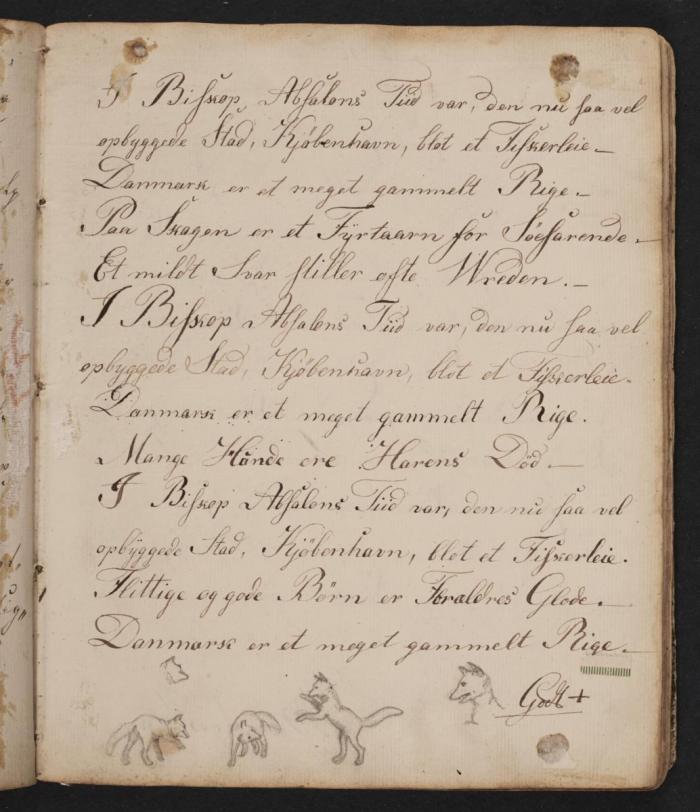 I Biskop, Absalons Tiid var, den nu saa vel
opbyggede Stad, Kjøbenhavn, blot et Fiskerleie.-
Danmark er et meget gammelt Rige.-
Paa Skagen er et Fyrtaarn for Søefarende.-
Et mildt Svar stiller ofte Wreden.-
I Biskop Absalons Tiid var, den nu saa vel
opbyggede Stad, Kjøbenhavn, blot et Fiskerleie.
Danmark er et meget gammelt Rige.
Mange Hunde ere Harens Död.-
I Biskop Absalons Tiid var, den nu saa vel
opbÿggede Stad, Kjöbenhavn, blot et Fiskerleie.
Flittige og gode Börn er Forældres Glæde.-
Danmark er et meget gammelt Rige.-
Godt +